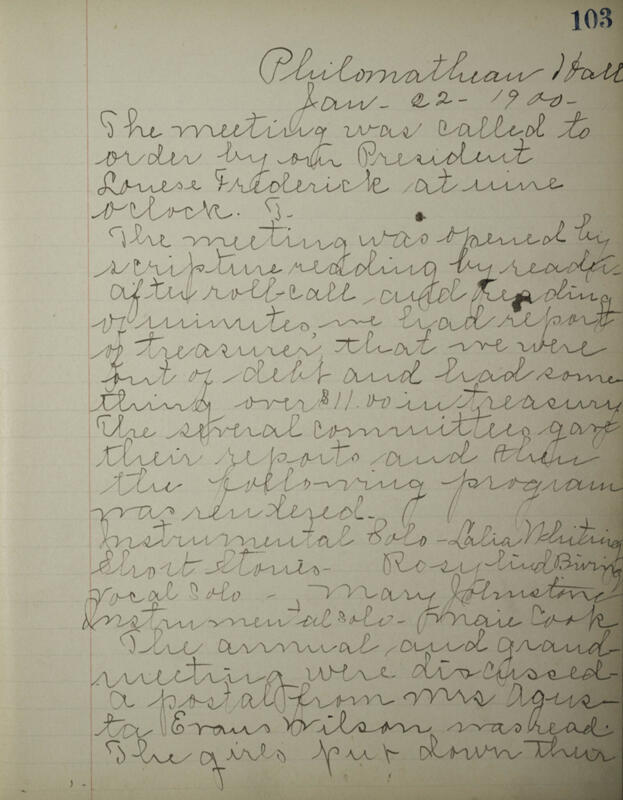 103
Philomathean Hall
Jan - 22 - 1900 -
The meeting was called to
order by our President
Louese Frederick at nine
oclock.
The meeting was opened by
scripture reading by reader -
after roll-call and reading
of minutes, we had report
of treasurer, that we were
out of debt and had some
thing over $11.00 in treasury
The several committees gave
their reports and then
the following program
was rendered.
Instrumental Solo - Lalia Whiting
Short Stories - Rosylind
Vocal Solo - Mary Johnstone
Instrumental Solo - Cook
The annual and grand
meeting were discussed -
a postal from Mrs Agus-
ta Evans Wilson was read.
The girls put down their